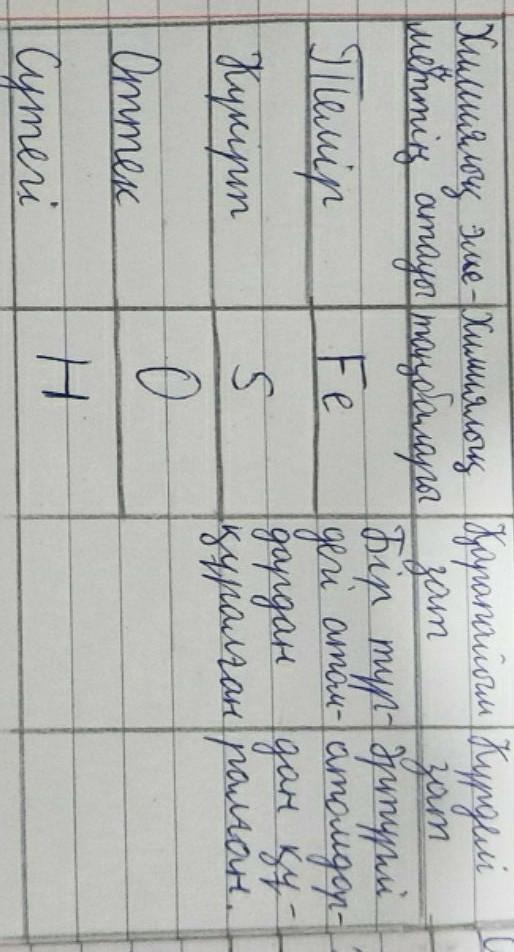 Химиялық эле-
менттің атауы
Химиялық
таңбалары
Қарапайым
зат
Күрделі
зат
Темір
Fe
Бір түр-
дегі атом-
дардан
құралған
Әртүрлі
атомдар-
дан құ-
ралған.
Күкірт
S
Оттек
O
Сутегі
H